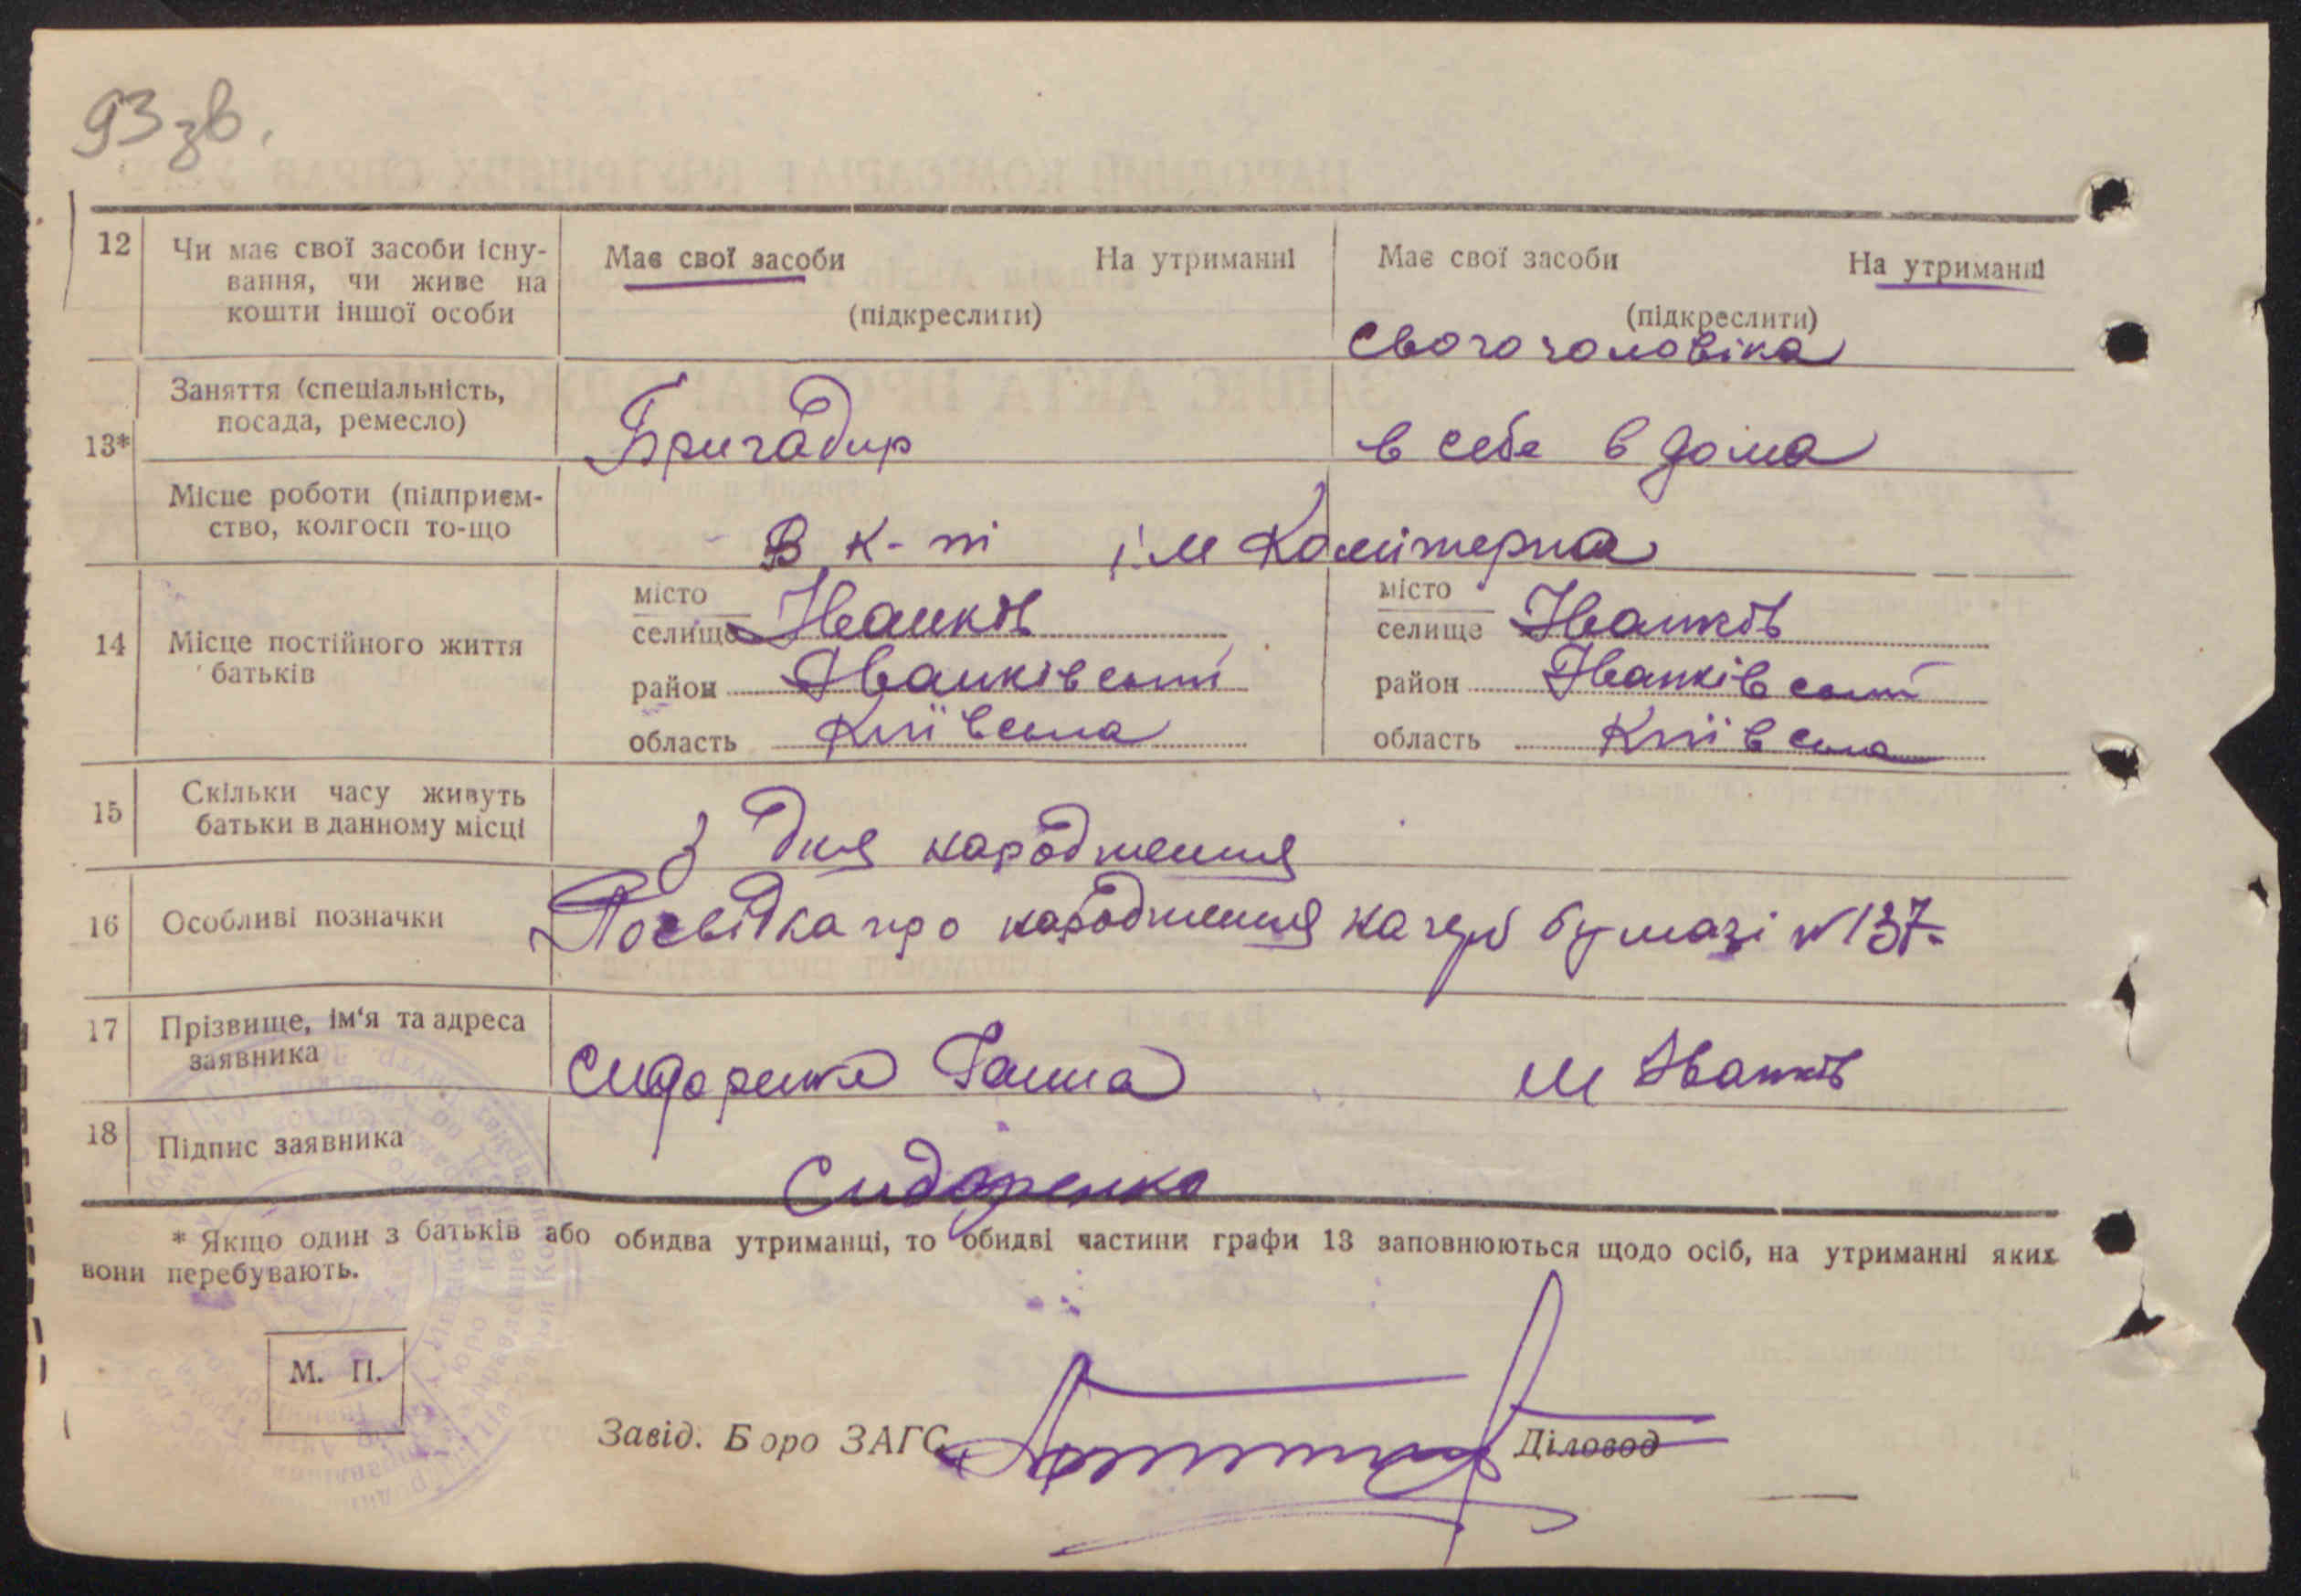 93 зв.
12 Чи має свої засоби існу- Має свої засоби На утриманні Має свої засоби На утриманні
вання, чи живе на
кошти іншої особи (підкреслити) (підкреслити)
свого чоловіка
Заняття (спеціальність,
посада, ремесло) Бригадир в себе в дома
13*
Місце роботи (підприєм-
ство, колгосп то-що В к-пі ім Комінтерна
14 Місце постійного життя
батьків
місто
селище Іванків
район Іванківський
область Київська
місто
селище Іванків
район Іванківський
область Київська
15 Скільки часу живуть
батьки в данному місці з дня народження
16 Особливі позначки Посвідка про народження на герб бумазі №137-
17 Прізвище, ім'я та адреса
заявника Сидоренко Ганна м Іванків
18 Підпис заявника Сидоренко
* Якщо один з батьків або обидва утриманці, то обидві частини графи 13 заповнюються щодо осіб, на утриманні яких
вони перебувають.
М. П.
Завід. Бюро ЗАГС Діловод